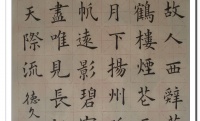 故人西辭
鶴樓煙花
月下揚州
帆遠影碧
盡唯見長
天際流
德久